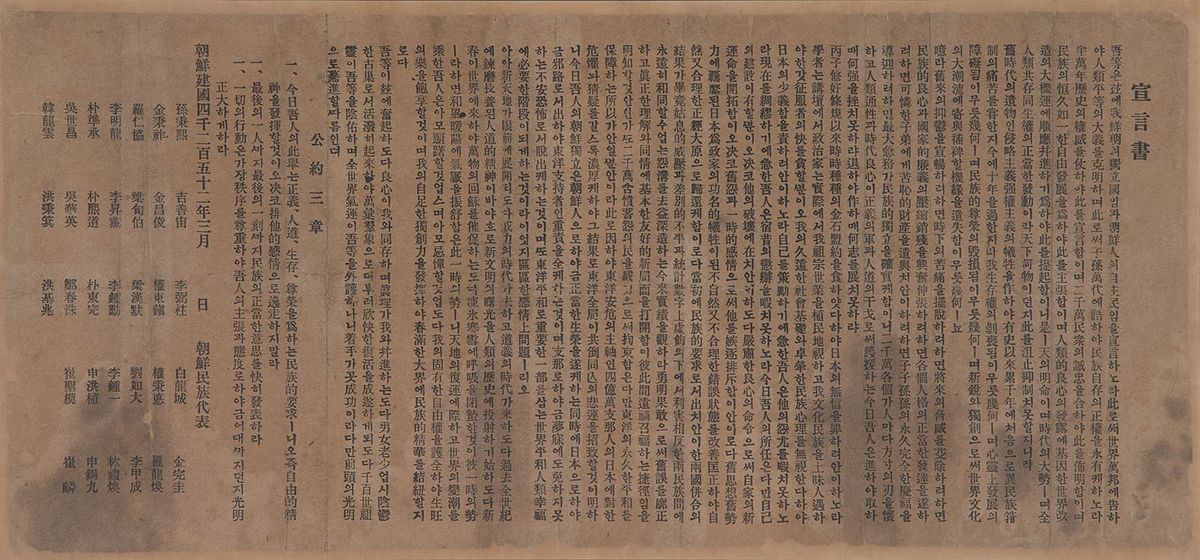 宣言書
吾等은玆에我鮮朝의獨立國임과朝鮮人의自主民임을宣言하노라此로써世界萬邦에告하
야人類平等의大義를克明하며此로써子孫萬代에誥하야民族自存의正權을永有케하노라
半萬年歷史의權威를仗하야此를宣言함이며二千萬民衆의誠忠을合하야此를佈明함이며
民族의恒久如一한自由發展을爲하야此를主張함이며人類的良心의發露에基因한世界改
造의大機運에順應幷進하기爲하야此를提起함이니是ㅣ天의明命이며時代의大勢ㅣ며全
人類共存同生權의正當한發動이라天下何物이던지此를沮止抑制치못할지니라
舊時代의遺物인侵略主義强權主義의犧牲을作하야有史以來累千年에처음으로異民族箝
制의痛苦를嘗한지今에十年을過한지라我生存權의剝喪됨이무릇幾何ㅣ며心靈上發展의
障礙됨이무릇幾何ㅣ며民族的尊榮의毀損됨이무릇幾何ㅣ며新銳와獨創으로써世界文化
의大潮流에寄與補裨할機緣을遺失함이무릇幾何ㅣ뇨
噫라舊來의抑鬱을宣暢하려하면時下의苦痛을擺脫하려하면將來의脅威를芟除하려하면
民族的良心과國家的廉義의壓縮銷殘을興奮伸張하려하면各個人格의正當한發達을遂하
려하면可憐한子弟에게苦恥的財産을遺與치안이하려하면子子孫孫의永久完全한慶福을
導迎하려하면最大急務가民族的獨立을確實케함이니二千萬各個가人마다方寸의刃을懷
하고人類通性과時代良心이正義의軍과人道의干戈로써護援하는今日吾人은進하야取하
매何强을挫치못하랴退하야作하매何志를展치못하랴
丙子修好條規以來時時種種의金石盟約을食하얏다하야日本의無信을罪하려안이하노라
學者는講壇에서政治家는實際에서我祖宗世業을植民地視하고我文化民族을土昧人遇하
야한갓征服者의快를貪할ᄲᅮᆫ이오我의久遠한社會基礎와卓犖한民族心理를無視한다하야
日本의少義함을責하려안이하노라自己를策勵하기에急한吾人은他의怨尤를暇치못하노
라現在를綢繆하기에急한吾人은宿昔의懲辨을暇치못하노라今日吾人의所任은다만自己
의建設이有할ᄲᅮᆫ이오決코他의破壞에在치안이하도다嚴肅한良心의命令으로써自家의新
運命을開拓함이오決코舊怨과一時的感情으로써他를嫉逐排斥함이안이로다舊思想舊勢
力에羈縻된日本爲政家의功名的犧牲이된不自然又不合理한錯誤狀態를改善匡正하야自
然又合理한正經大原으로歸還케함이로다當初에民族的要求로서出치안이한兩國倂合의
結果가畢竟姑息的威壓과差別的不平과統計數字上虛飾의下에서利害相反한兩民族間에
永遠히和同할수업는怨溝를去益深造하는今來實績을觀하라勇明果敢으로써舊誤를廓正
하고眞正한理解와同情에基本한友好的新局面을打開함이彼此間遠禍召福하는捷徑임을
明知할것안인가ᄯᅩ二千萬含憤蓄怨의民을威力으로써拘束함은다만東洋의永久한平和를
保障하는所以가안일ᄲᅮᆫ안이라此로因하야東洋安危의主軸인四億萬支那人의日本에對한
危懼와猜疑를갈스록濃厚케하야그結果로東洋全局이共倒同亡의悲運을招致할것이明하
니今日吾人의朝鮮獨立은朝鮮人으로하야금正當한生榮을遂케하는同時에日本으로하야
금邪路로서出하야東洋支持者인重責을全케하는것이며支那로하야금夢寐에도免하지못
하는不安恐怖로서脫出케하는것이며ᄯᅩ東洋平和로重要한一部를삼는世界平和人類幸福
에必要한階段이되게하는것이라이엇지區區한感情上問題ㅣ리오
아아新天地가眼前에展開되도다威力의時代가去하고道義의時代가來하도다過去全世紀
에鍊磨長養된人道的精神이바야흐로新文明의曙光을人類의歷史에投射하기始하도다新
春이世界에來하야萬物의回穌를催促하는도다凍氷寒雪에呼吸을閉蟄한것이彼一時의勢
ㅣ라하면和風暖陽에氣脈을振舒함은此一時의勢ㅣ니天地의復運에際하고世界의變潮를
乘한吾人은아모躊躇할것업스며아모忌憚할것업도다我의固有한自由權을護全하야生旺
의樂을飽享할것이며我의自足한獨創力을發揮하야春滿한大界에民族的精華를結紐할지
로다
吾等이玆에奮起하도다良心이我와同存하며眞理가我와幷進하는도다男女老少업시陰鬱
한古巢로서活潑히起來하야萬彙羣象으로더부러欣快한復活을成遂하게되도다千百世祖
靈이吾等을陰佑하며全世界氣運이吾等을外護하나니着手가곳成功이라다만前頭의光明
으로驀進할ᄯᅡ름인뎌
公約三章
一、今日吾人의此擧는正義、人道、生存、尊榮을爲하는民族的要求ㅣ니오즉自由的精
神을發揮할것이오決코排他的感情으로逸走하지말라
一、最後의一人ᄭᅡ지最後의一刻ᄭᅡ지民族의正當한意思를快히發表하라
一、一切의行動은가장秩序를尊重하야吾人의主張과態度로하야금어대ᄭᅡ지던지光明
正大하게하라
朝鮮建國四千二百五十二年三月 日 朝鮮民族代表
孫秉熙 吉善宙 李弼柱 白龍城 金完圭
金秉祚 金昌俊 權東鎭 權秉悳 羅龍煥
羅仁協 梁甸伯 梁漢默 劉如大 李甲成
李明龍 李昇薰 李鍾勳 李鍾一 林禮煥
朴準承 朴熙道 朴東完 申洪植 申錫九
吳世昌 吳華英 鄭春洙 崔聖模 崔麟
韓龍雲 洪秉箕 洪基兆